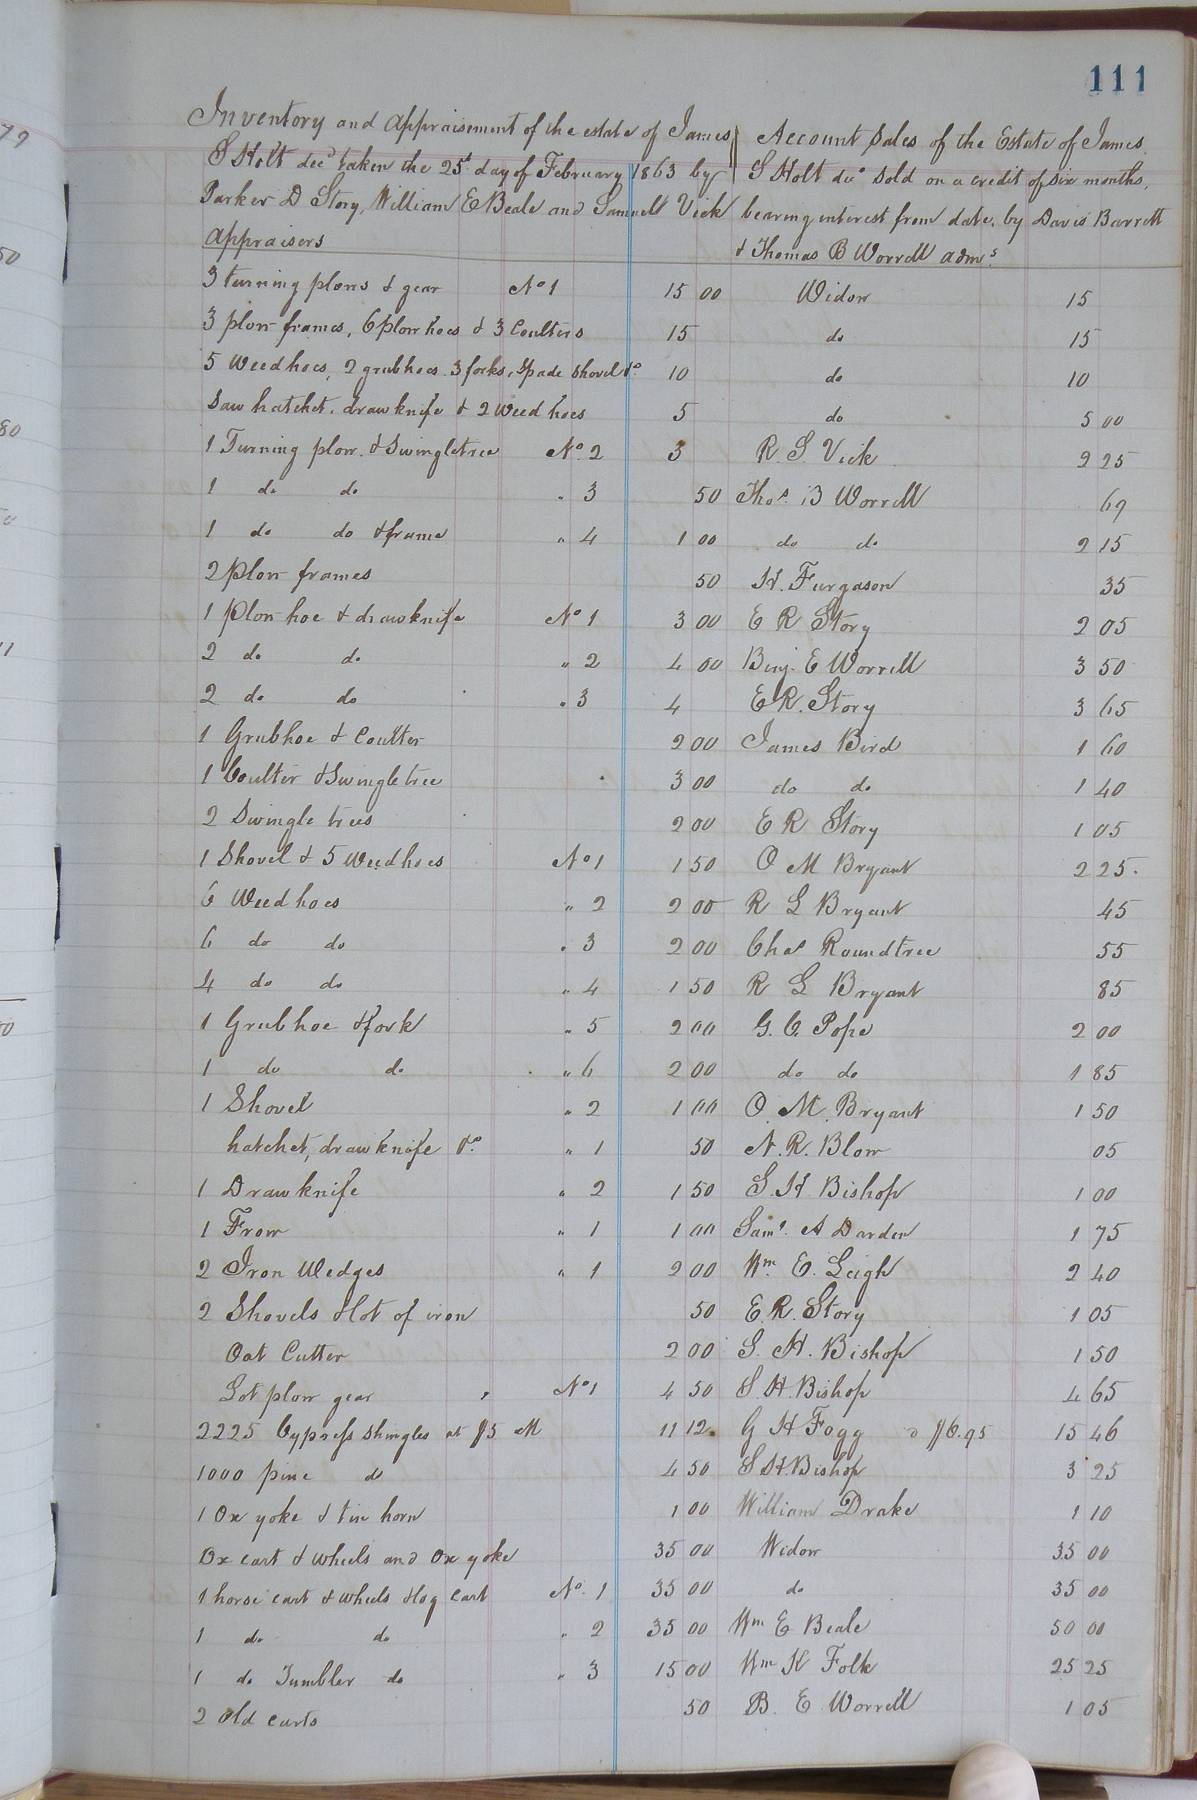 111
Inventory and Appraisement of the estate of James
S Holt decd taken the 25th day of February 1863 by
Parker D Story, William E Beale and Samuell Vick
appraisers
Account Sales of the Estate of James
S Holt decd sold on a credit of six months,
bearing interest from date, by Davis Barrett
& Thomas B Worrell adms
3 turning plows & gear No 1 15 00 Widow 15
3 plow frames, 6 plow hoes & 3 Coulters 15 do 15
5 Weedhoes, 2 grubhoes 3 forks, Spade Shovel &c 10 do 10
Saw hatchet, drawknife & 2 Weed hoes 5 do 5 00
1 Turning plow & Swingletree No. 2 3 R. S. Vick 2 25
1 do do " 3 50 Thos. B Worrell 69
1 do do & frame " 4 1 00 do do 2 15
2 Plow frames 50 H. Furgason 35
1 Plow hoe & drawknife No 1 3 00 E R Story 2 05
2 do do " 2 4 00 Binj. E Worrell 3 50
2 do do " 3 4 E R. Story 3 65
1 Grubhoe & Coulter 2 00 James Bird 1 60
1 Coulter & Swingletree 3 00 do do 1 40
2 Swingle trees 2 00 E R Story 1 05
1 Shovel & 5 Weedhoes No 1 1 50 O M Bryant 2 25
6 Weedhoes " 2 2 00 R L Bryant 45
6 do do " 3 2 00 Chas Roundtree 55
4 do do " 4 1 50 R L Bryant 85
1 Grubhoe & fork " 5 2 00 G. C. Pope 2 00
1 do do " 6 2 00 do do 1 85
1 Shovel " 2 1 00 O. M. Bryant 1 50
hatchet, drawknife &c " 1 50 N. R. Blow 05
1 Drawknife " 2 1 50 S. H Bishop 1 00
1 Frow " 1 1 00 Saml. A Darden 1 75
2 Iron Wedges " 1 2 00 Wm. E. Leigh 2 40
2 Shovels & lot of iron 50 E. R. Story 1 05
Oat Cutter 2 00 S. H. Bishop 1 50
Lot plow gear No 1 4 50 S. H. Bishop 4 65
2225 Cypress shingles at $5 M 11 12 G H Fogg @ $6.95 15 46
1000 pine do 4 50 S H. Bishop 3 25
1 Ox yoke & tin horn 1 00 William Drake 1 10
Ox cart & wheels and Ox yoke 35 00 Widow 35 00
1 horse cart & wheels & log cart No. 1 35 00 do 35 00
1 do do " 2 35 00 Wm E Beale 50 00
1 do Tumbler do " 3 15 00 Wm H Folk 25 25
2 old carts 50 B. E Worrell 1 05